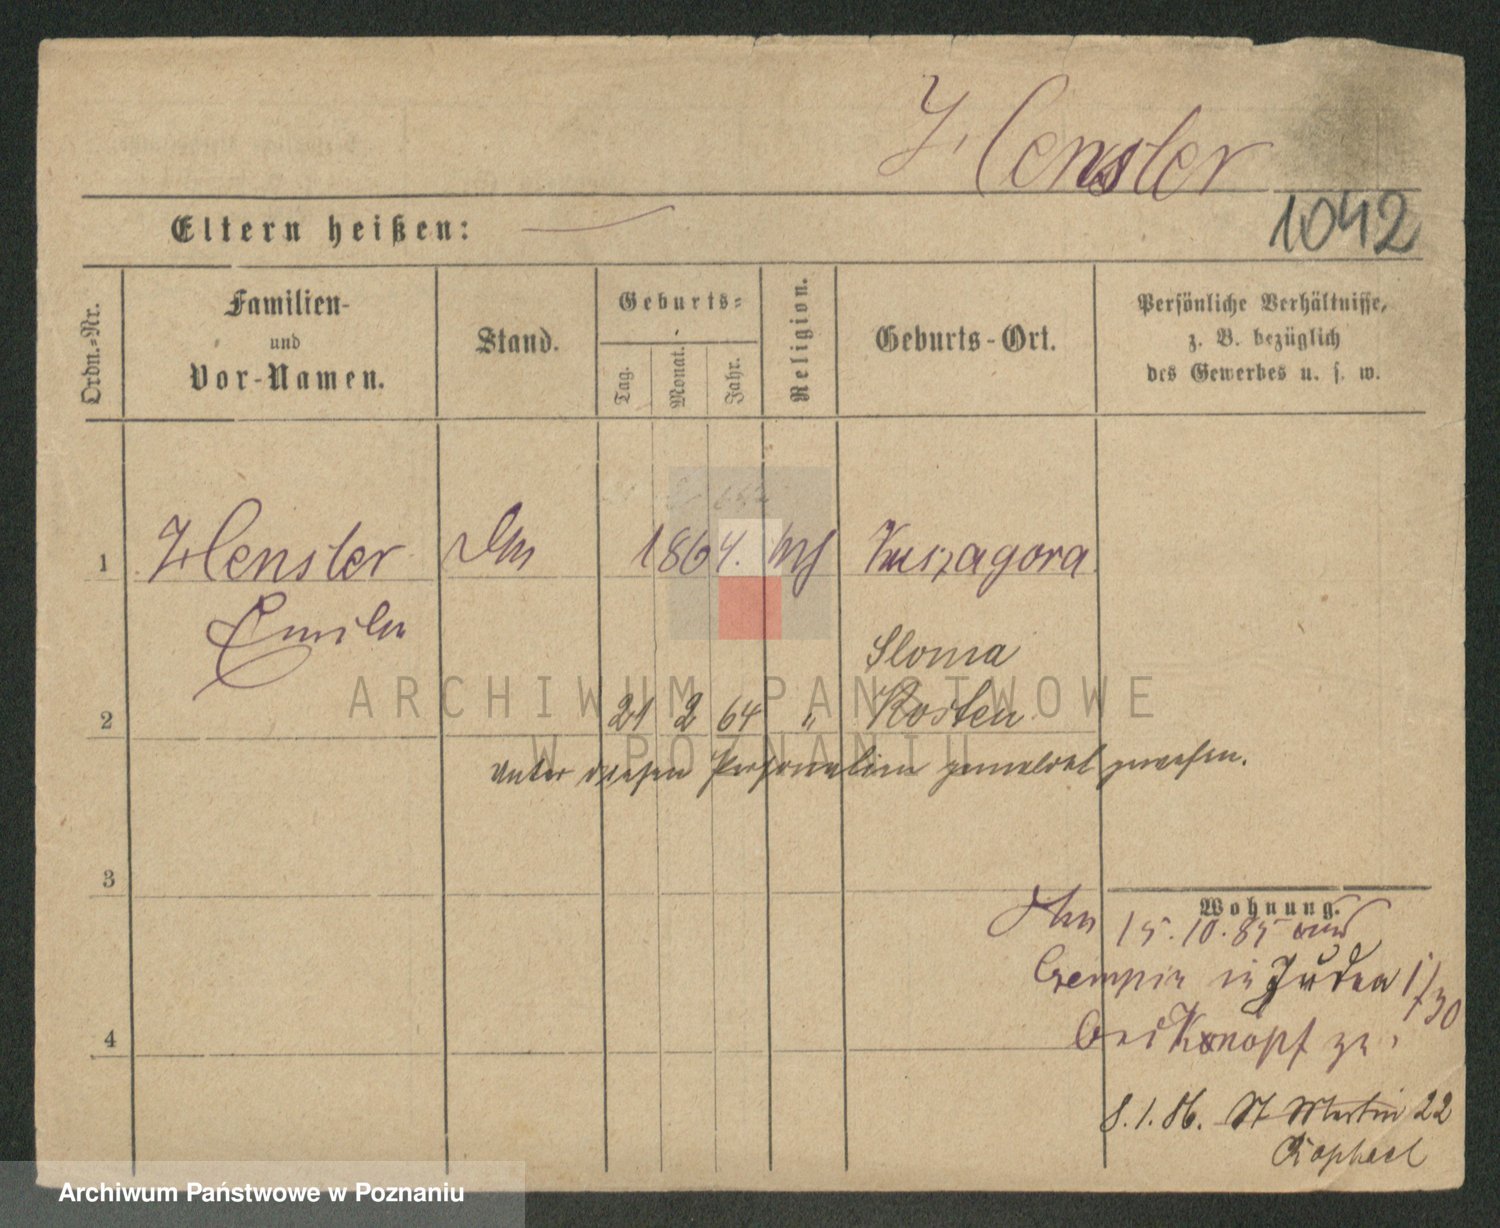 Hensler
1042
Eltern heißen:
Ordn.-Nr.
Familien-
und
Vor-Namen.
Stand.
Geburts-
Tag.
Monat.
Jahr.
Religion.
Geburts-Ort.
Persönliche Verhältnisse,
z. B. bezüglich
des Gewerbes u. s. w.
1 Hensler 1864.
Emilie
Sloma
2 21 2 64 " Kosten
unter diesen Personalien gemeldet gewesen.
3
Wohnung.
15. 10. 85 aus
Czempin in Juden 1/30
bei Knopf zu.
4
8. 1. 86. St Martin 22
Raphael
ARCHIWUM PAŃSTWOWE
W POZNANIU
Archiwum Państwowe w Poznaniu